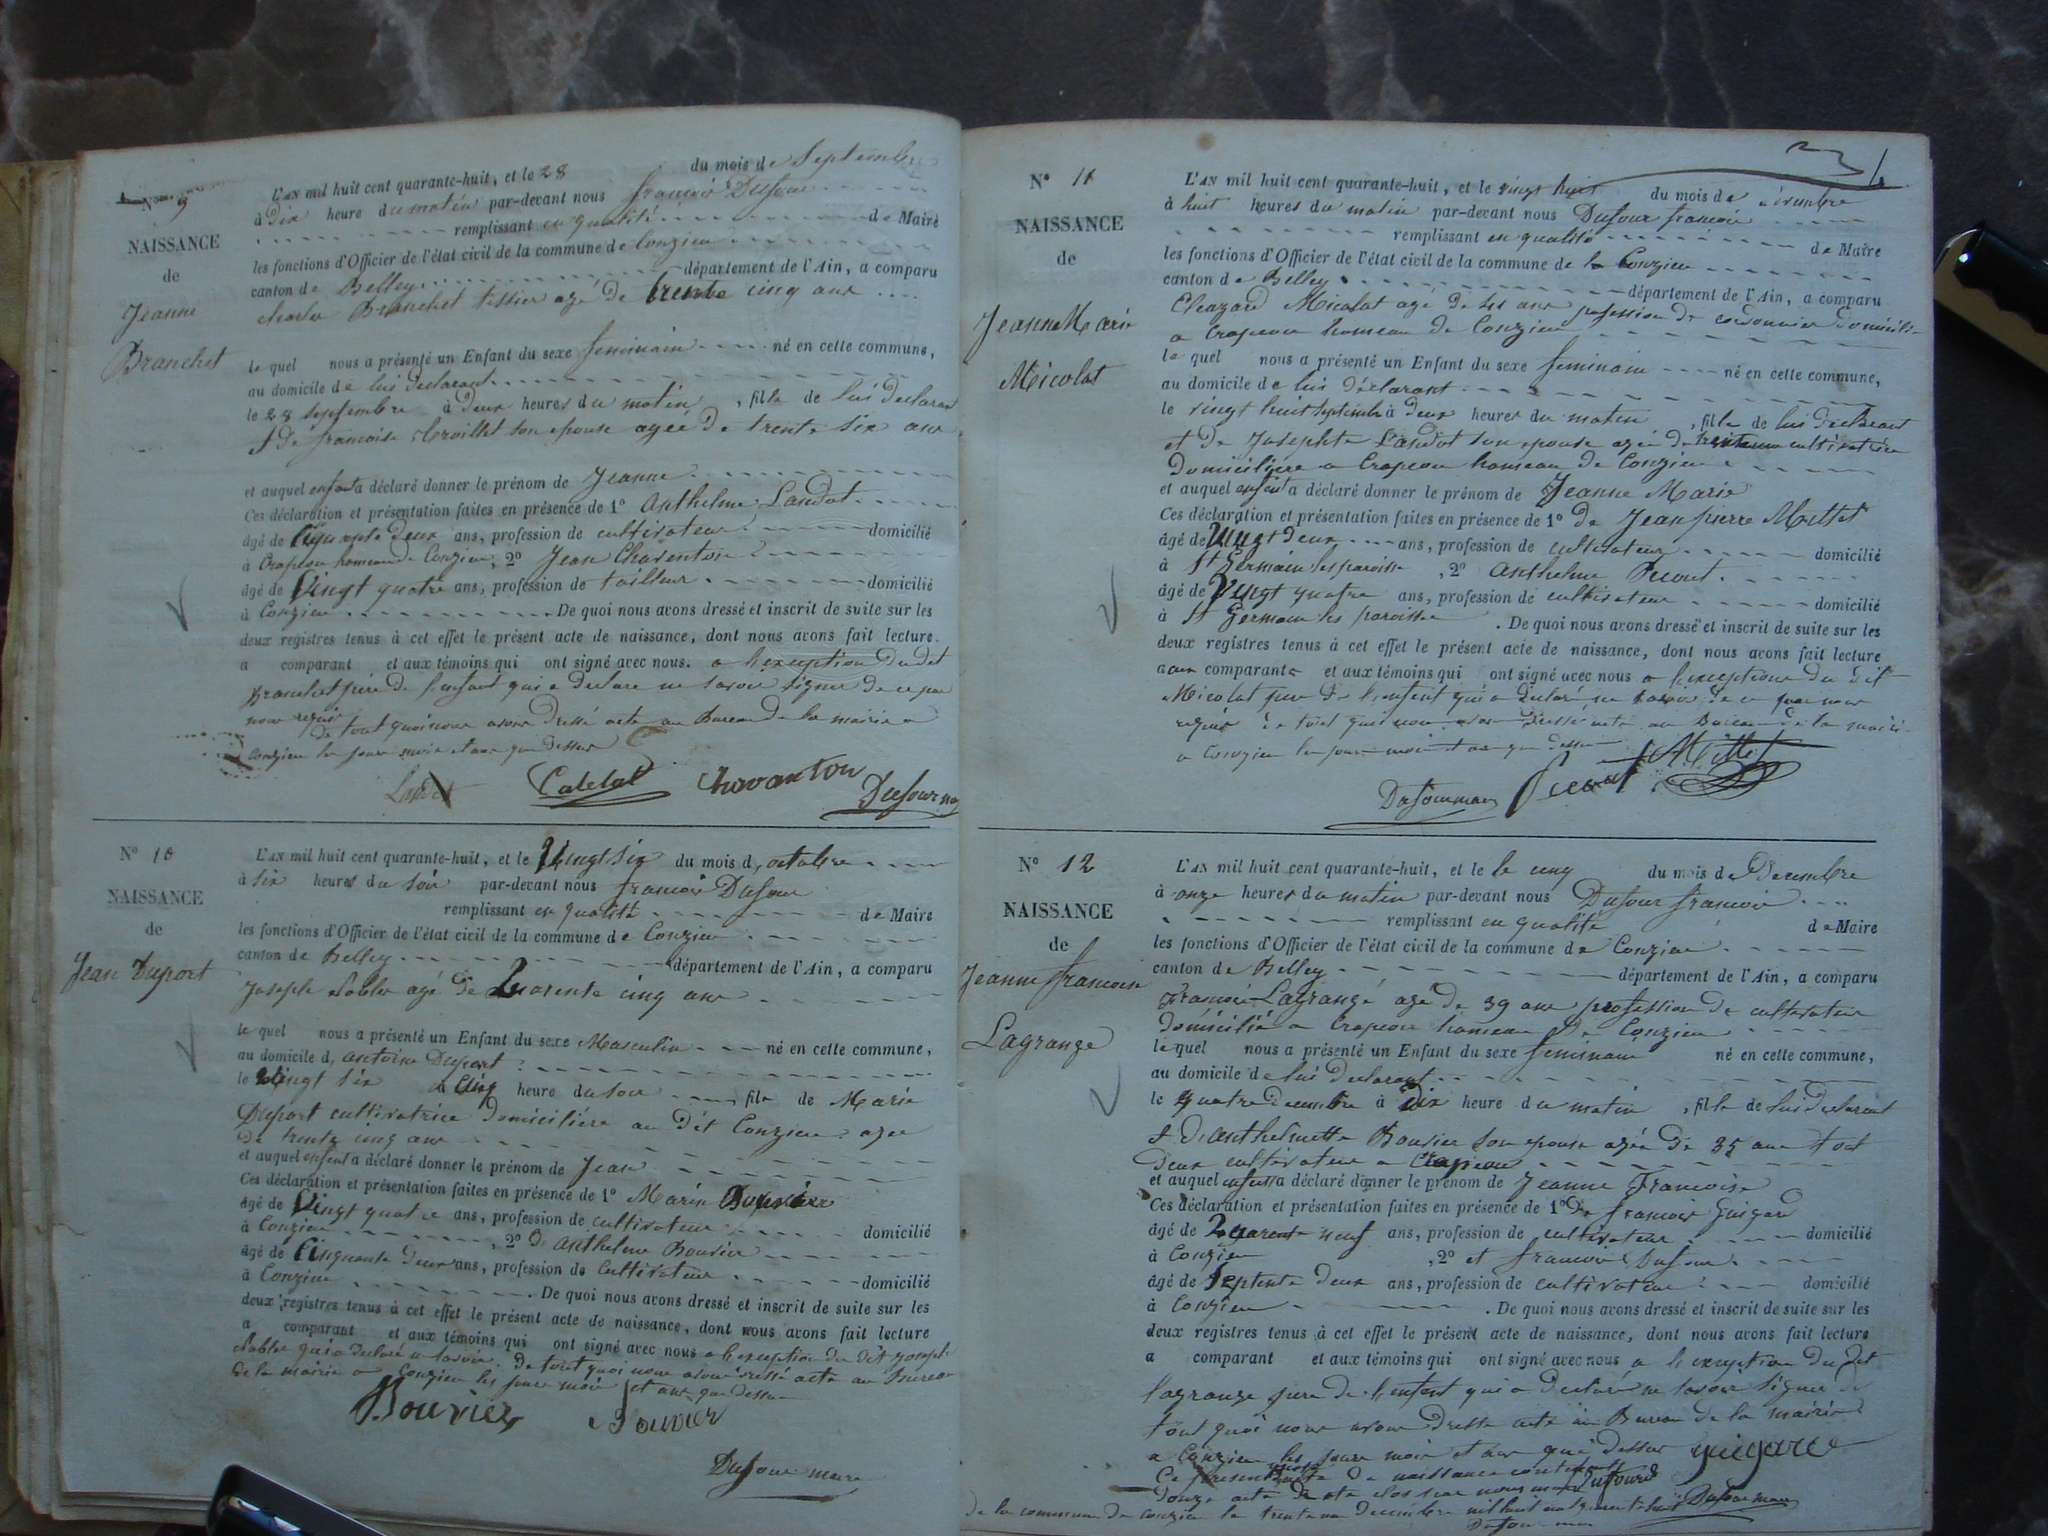 N° 9
NAISSANCE
de
Jeanne
Branchet
L'AN mil huit cent quarante-huit, et le 28 du mois de Septembre
à dix heure du matin par-devant nous francois Dufour
remplissant en qualité de Maire
les fonctions d'Officier de l'état civil de la commune de Conzieu
canton de Belley département de l'Ain, a comparu
charles Branchet tissier agé de trente cinq ans
le quel nous a présenté un Enfant du sexe feminain né en cette commune,
au domicile de lui declarant
le 28 septembre à deux heures du matin, fille de lui declarant
et de francoise son epouse agée de trente six ans
et auquel enfant a déclaré donner le prénom de Jeanne
Ces déclaration et présentation faites en présence de 1° Anthelme Landot
âgé de deux ans, profession de cultivateur domicilié
à Crapeou hameau de Conzieu, 2° Jean Charenton
âgé de Vingt quatre ans, profession de tailleur domicilié
à Conzieu De quoi nous avons dressé et inscrit de suite sur les
deux registres tenus à cet effet le présent acte de naissance, dont nous avons fait lecture
a comparant et aux témoins qui ont signé avec nous. a l'exception du dit
Branchet père de l'enfant qui a declare ne savoir signer de ce par
nous requis de tout quoi nous avons dressé acte au Bureau de la mairie a
Conzieu les jour mois et an que dessus
Chavanton
Dufour
N° 10
NAISSANCE
de
Jean Duport
L'AN mil huit cent quarante-huit, et le Vingt six du mois d, octobre
à six heures du soir par-devant nous francois Dufour
remplissant en qualité de Maire
les fonctions d'Officier de l'état civil de la commune de Conzieu
canton de Belley département de l'Ain, a comparu
Joseph agé de Quarente cinq ans
le quel nous a présenté un Enfant du sexe Masculin né en cette commune,
au domicile d, antoine Duport
le Vingt six a Cinq heure du soir fils de Marie
Duport cultivatrice domicilière au dit Conzieu agee
de trente cinq ans
et auquel enfant a déclaré donner le prénom de Jean
Ces déclaration et présentation faites en présence de 1° Marin Bouvier
âgé de Vingt quatre ans, profession de cultivateur domicilié
à Conzieu, 2° d anthelme Bouvier
âgé de Cinquante deux ans, profession de Cultivateur domicilié
à Conzieu De quoi nous avons dressé et inscrit de suite sur les
deux registres tenus à cet effet le présent acte de naissance, dont nous avons fait lecture
a comparant et aux témoins qui ont signé avec nous a l'exception du dit Joseph
qui a declaré savoir. de tout quoi nous avons dressé acte au Bureau
de la mairie a Conzieu les jour mois et ans que dessus
Bouvier Bouvier
Dufour maire
N° 11
NAISSANCE
de
Jeanne Marie
Micolat
L'AN mil huit cent quarante-huit, et le vingt huit du mois de
à huit heures du matin par-devant nous Dufour francois
remplissant en qualité de Maire
les fonctions d'Officier de l'état civil de la commune de Conzieu
canton de Belley département de l'Ain, a comparu
Eleazard Micolat agé de 41 ans profession de cordonnier domicilié
a Crapeou hameau de Conzieu
le quel nous a présenté un Enfant du sexe feminain né en cette commune,
au domicile de lui déclarant
le vingt huit septembre à deux heures du matin, fille de lui declarant
et de Josephte Landot son epouse agée de cultivatrice
domicilière a Crapeou hameau de Conzieu
et auquel enfant a déclaré donner le prénom de Jeanne Marie
Ces déclaration et présentation faites en présence de 1° de Jean pierre Millet
âgé de Vingt deux ans, profession de cultivateur domicilié
à St Germain les paroisse, 2° Anthelme Picout
âgé de Vingt quatre ans, profession de cultivateur domicilié
à St Germain les paroisse. De quoi nous avons dressé et inscrit de suite sur les
deux registres tenus à cet effet le présent acte de naissance, dont nous avons fait lecture
a aux comparants et aux témoins qui ont signé avec nous a l'exceptions du dit
Micolat père de l'enfant qui a declaré ne savoir de ce par nous
requis de tout quoi nous avons dressé acte au Bureau de la mairie
a Conzieu les jour mois et an que dessus
Dufour maire Picout Millet
N° 12
NAISSANCE
de
Jeanne francoise
Lagrange
L'AN mil huit cent quarante-huit, et le le cinq du mois de Décembre
à onze heures du matin par-devant nous Dufour francois
remplissant en qualité de Maire
les fonctions d'Officier de l'état civil de la commune de Conzieu
canton de Belley département de l'Ain, a comparu
francois Lagrange agé de 39 ans profession de cultivateur
domicilié a Crapeou hameau de Conzieu
le quel nous a présenté un Enfant du sexe feminain né en cette commune,
au domicile de lui declarant
le quatre Decembre à dix heure du matin, fille de lui declarant
et d'anthelmette Bouvier son epouse agée de 35 ans tout
deux cultivateur a Crapeou
et auquel enfant a déclaré donner le prénom de Jeanne Francoise
Ces déclaration et présentation faites en présence de 1° de francois Guigard
âgé de Quarente neuf ans, profession de cultivateur domicilié
à Conzieu, 2° et francois Dufour
âgé de Septente deux ans, profession de cultivateur domicilié
à Conzieu. De quoi nous avons dressé et inscrit de suite sur les
deux registres tenus à cet effet le présent acte de naissance, dont nous avons fait lecture
a comparant et aux témoins qui ont signé avec nous a l'exception du dit
lagrange pere de l'enfant qui a declaré ne savoir signer de
tout quoi nous avons dressé acte au Bureau de la mairie
a Conzieu les jour mois et an que dessus guigard
Ce present de naissance contenant Dufour
douze acte a été clos par nous maire Dufour maire
de la commune de Conzieu le trente un decembre mil huit cent quarante huit